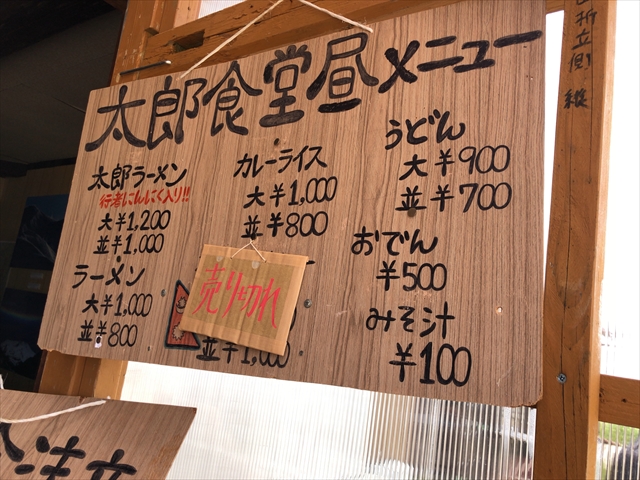 太郎食堂昼メニュー
太郎ラーメン
行者にんにく入り!!
大¥1,200
並¥1,000
ラーメン
大¥1,000
並¥800
カレーライス
大¥1,000
並¥800
売り切れ
並¥1,000
うどん
大¥900
並¥700
おでん
¥500
みそ汁
¥100
折立側
縦